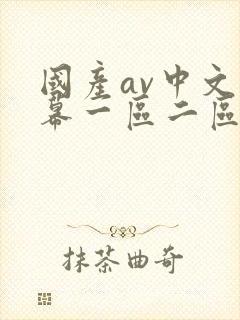 國產av中文
幕一區二區
抹茶曲奇